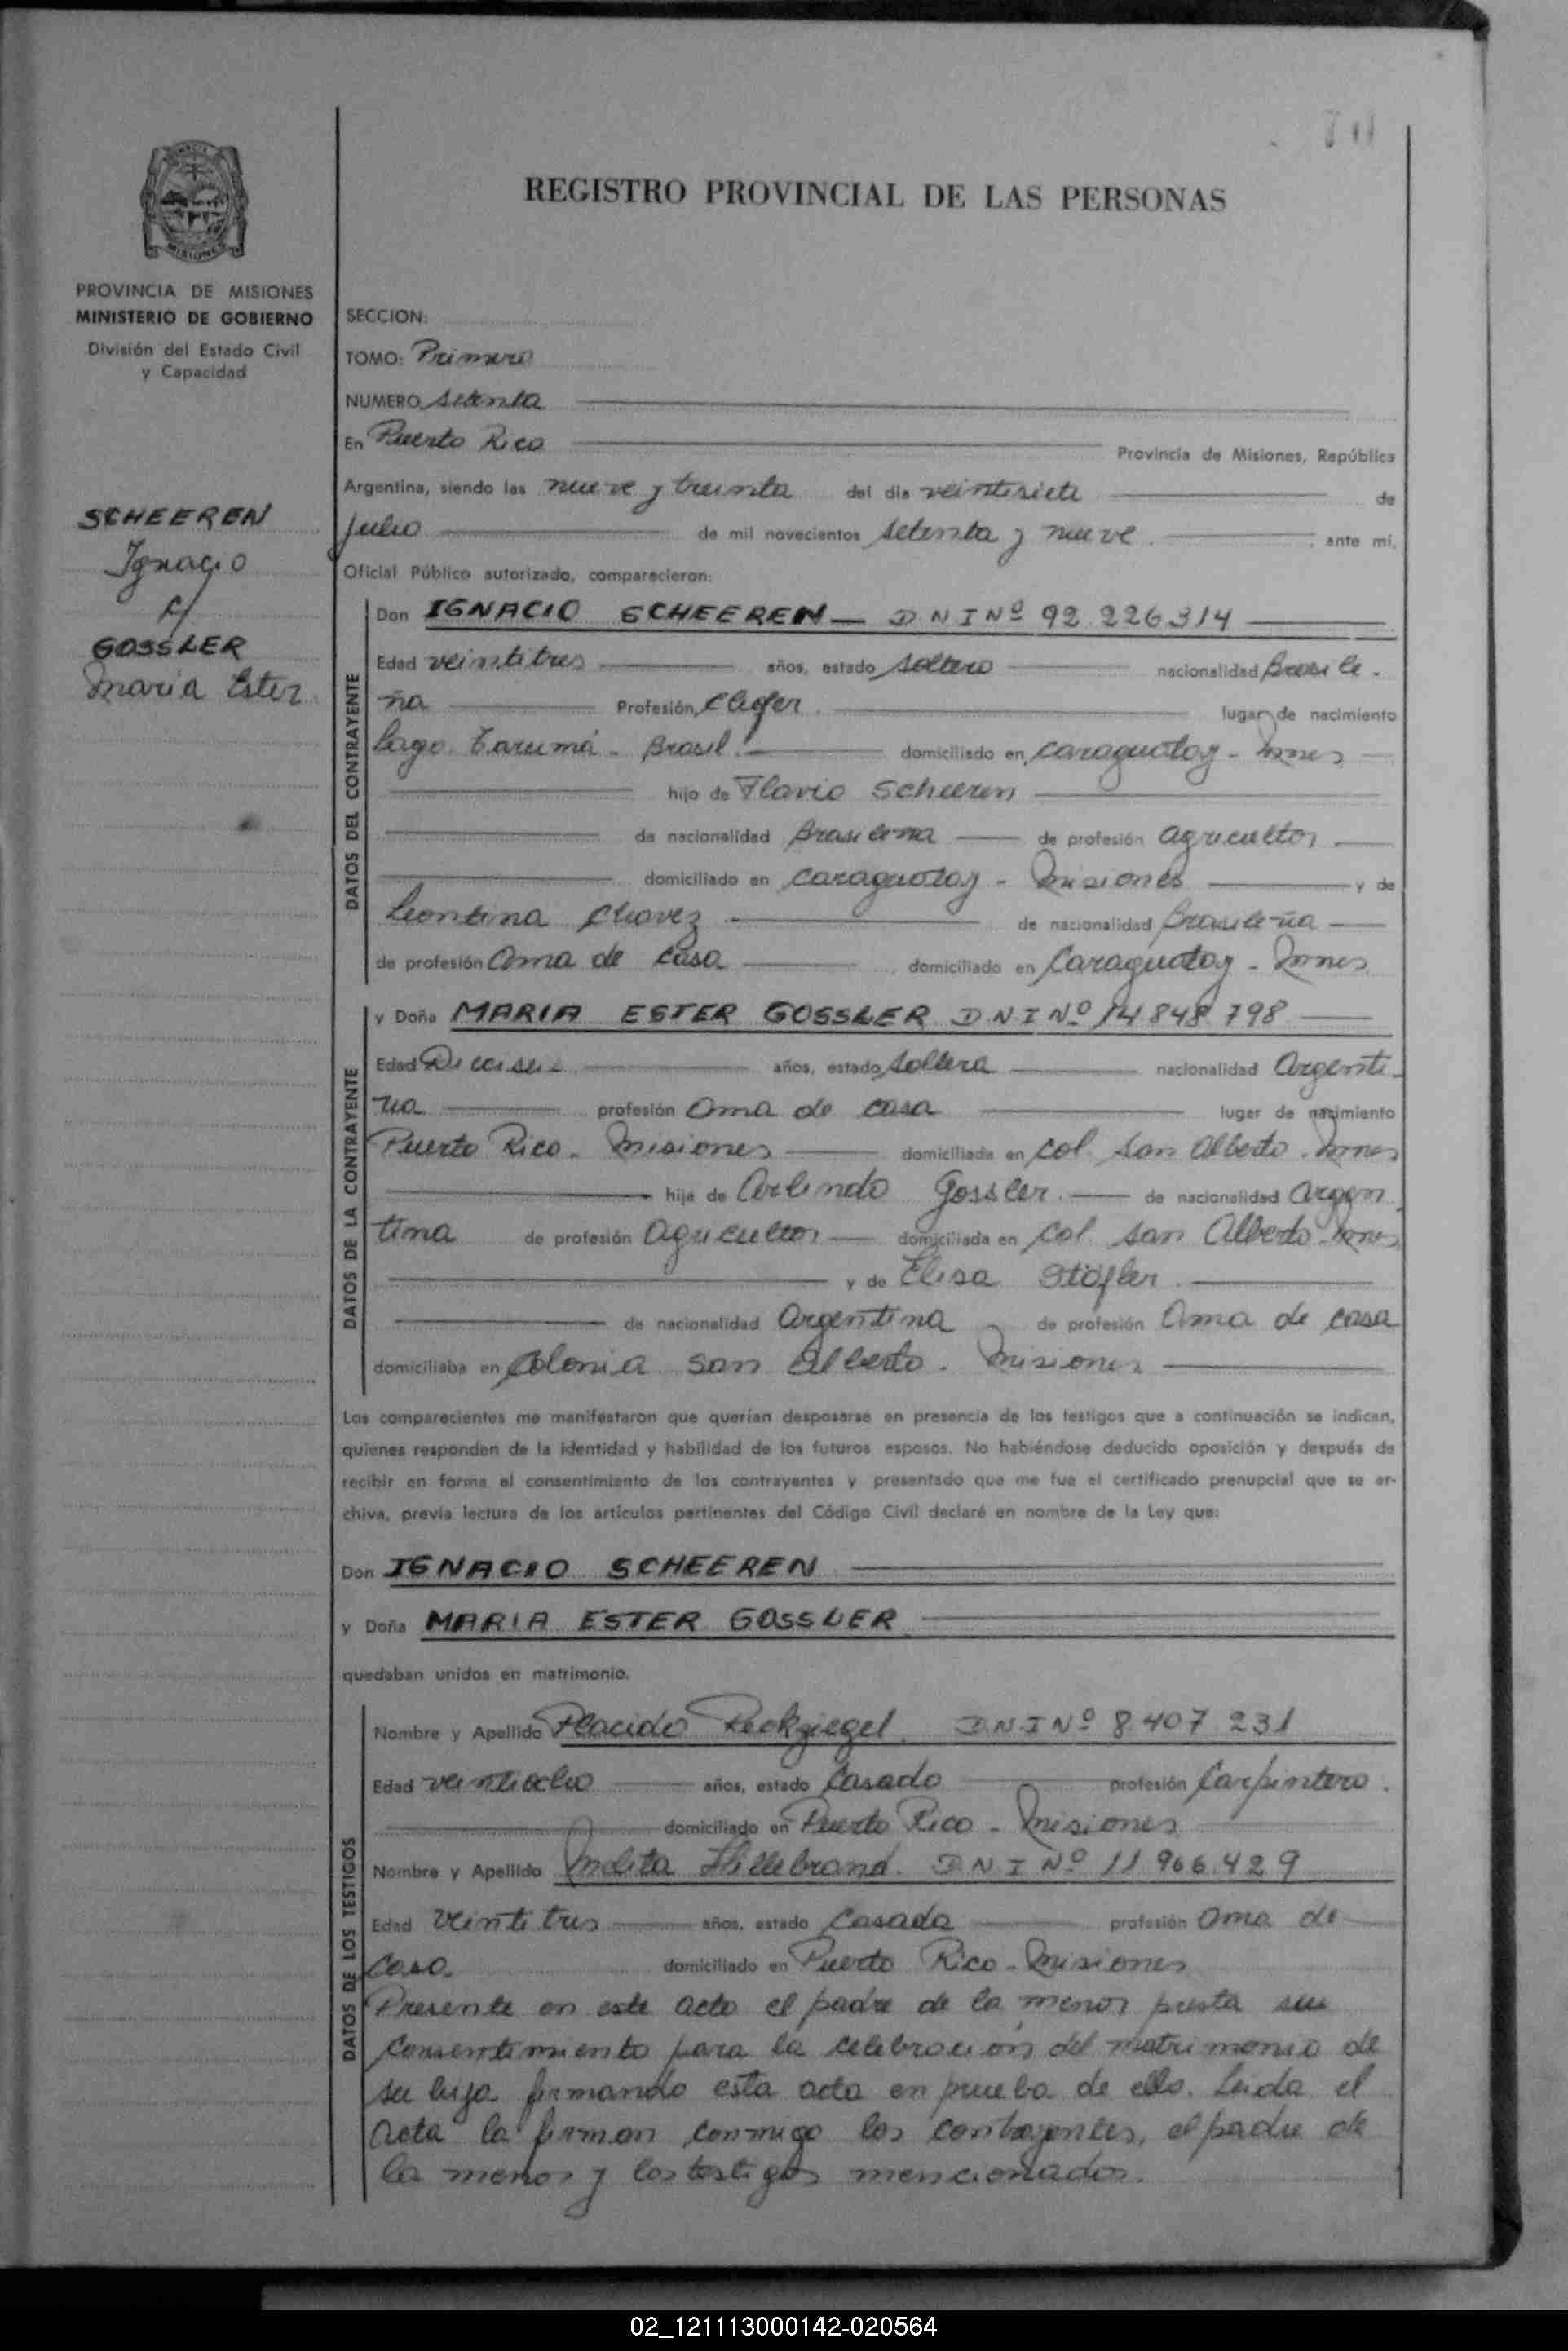 REGISTRO PROVINCIAL DE LAS PERSONAS
MISIONES
PROVINCIA DE MISIONES
MINISTERIO DE GOBIERNO
División del Estado Civil
y Capacidad
SCHEEREN
Ignacio
c/
GOSSLER
Maria Ester
SECCION:
TOMO: Primero
NUMERO setenta
En Puerto Rico Provincia de Misiones, República
Argentina, siendo las nueve y treinta del día veintisiete de
Julio de mil novecientos setenta y nueve. ante mí,
Oficial Público autorizado, comparecieron:
DATOS DEL CONTRAYENTE
Don IGNACIO SCHEEREN — DNI Nº 92 226 314
Edad veintitres años, estado soltero nacionalidad Brasile-
ña Profesión Chofer. lugar de nacimiento
Lago Tarumá - Brasil. domiciliado en Caraguatay - Mnes
hijo de Flavio Scheeren
de nacionalidad Brasilena de profesión agricultor
domiciliado en Caraguatay - Misiones y de
Leontina Chavez de nacionalidad Brasileña
de profesión Ama de Casa domiciliado en Caraguatay - Mnes
DATOS DE LA CONTRAYENTE
y Doña MARIA ESTER GOSSLER D.N.I Nº 14 848 798
Edad Dieciseis años, estado soltera nacionalidad Argenti-
na profesión Ama de casa lugar de nacimiento
Puerto Rico - Misiones domiciliada en Col. San Alberto. Mnes
hija de Arlindo Gossler. de nacionalidad Argen
tina de profesión agricultor domiciliada en Col. San Alberto Mnes
y de Elisa Stöfler
de nacionalidad Argentina de profesión Ama de casa
domiciliaba en Colonia San Alberto. Misiones
Los comparecientes me manifestaron que querían desposarse en presencia de los testigos que a continuación se indican,
quienes responden de la identidad y habilidad de los futuros esposos. No habiéndose deducido oposición y después de
recibir en forma el consentimiento de los contrayentes y presentado que me fue el certificado prenupcial que se ar-
chiva, previa lectura de los artículos pertinentes del Código Civil declaré en nombre de la Ley que:
Don IGNACIO SCHEEREN
y Doña MARIA ESTER GOSSLER
quedaban unidos en matrimonio.
DATOS DE LOS TESTIGOS
Nombre y Apellido Placido Reckziegel. D.N.I Nº 8.407 231
Edad veintiocho años, estado Casado profesión Carpintero.
domiciliado en Puerto Rico - Misiones
Nombre y Apellido Hillebrand. D.N I Nº 11 966.429
Edad veintitres años, estado Casada profesión Ama de
Casa. domiciliado en Puerto Rico - Misiones
Presente en este acto el padre de la menor presta su
consentimiento para la celebración del matrimonio de
su hija firmando esta acta en prueba de ello. Leida el
acta la firman conmigo los contrayentes, el padre de
la menor y los testigos mencionados.
02_121113000142-020564